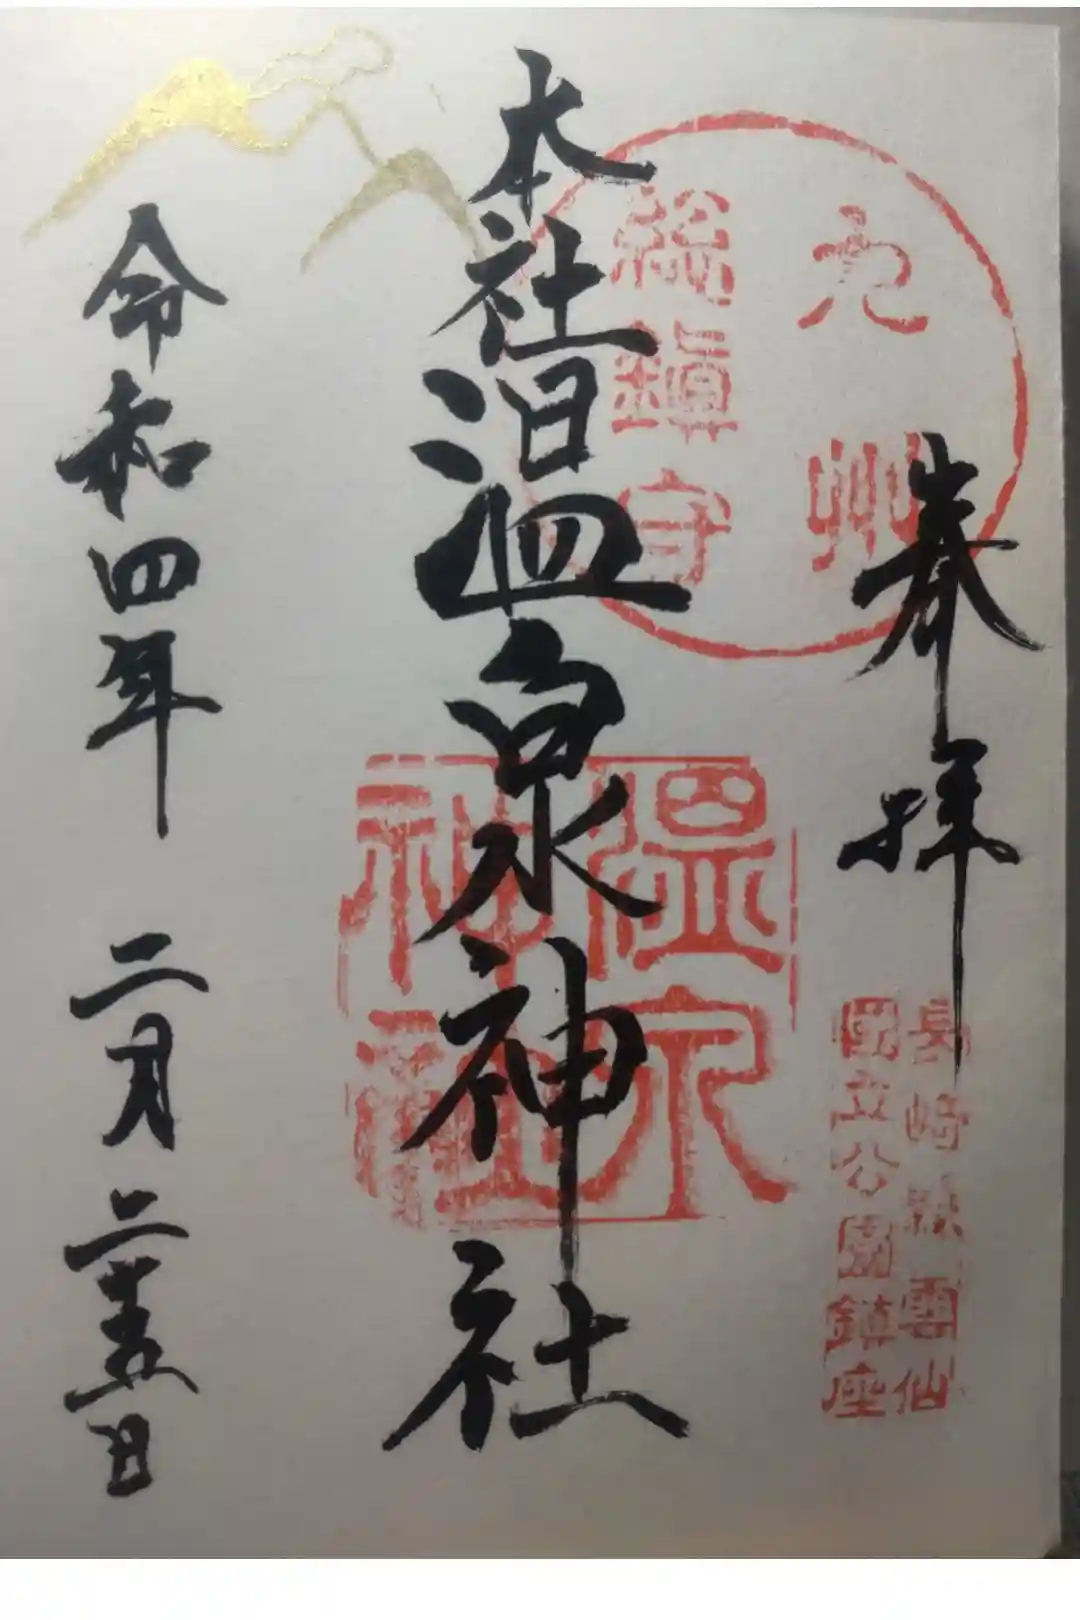 奉拝
九州
総鎮守
長崎縣雲仙
國立公園鎮座
本社温泉神社
温泉
神社
令和四年 二月 二十五日